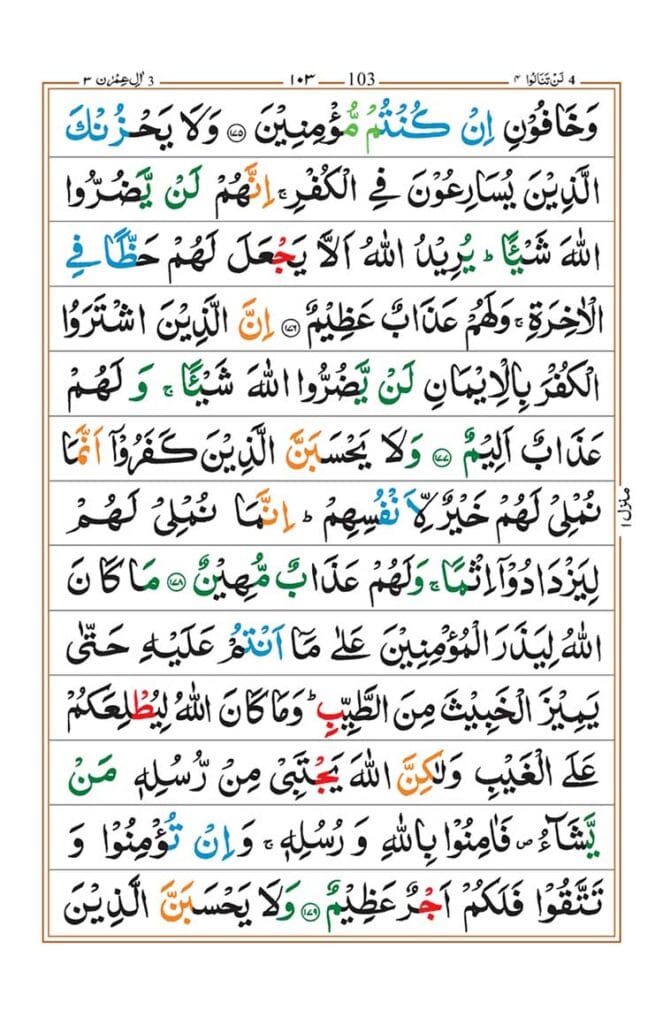 3 اٰلِ عِمْرٰن ٣ — ١٠٣ — 103 — 4 لَنْ تَنَالُوا ٤
وَخَافُوْنِ اِنْ كُنْتُمْ مُّؤْمِنِيْنَ ﴿١٧٥﴾ وَلَا يَحْزُنْكَ
الَّذِيْنَ يُسَارِعُوْنَ فِي الْكُفْرِ ۚ اِنَّهُمْ لَنْ يَّضُرُّوا
اللّٰهَ شَيْـًٔا ؕ يُرِيْدُ اللّٰهُ اَلَّا يَجْعَلَ لَهُمْ حَظًّا فِي
الْاٰخِرَةِ ۚ وَلَهُمْ عَذَابٌ عَظِيْمٌ ﴿١٧٦﴾ اِنَّ الَّذِيْنَ اشْتَرَوُا
الْكُفْرَ بِالْاِيْمَانِ لَنْ يَّضُرُّوا اللّٰهَ شَيْـًٔا ۚ وَ لَهُمْ
عَذَابٌ اَلِيْمٌ ﴿١٧٧﴾ وَلَا يَحْسَبَنَّ الَّذِيْنَ كَفَرُوْۤا اَنَّمَا
نُمْلِيْ لَهُمْ خَيْرٌ لِّاَنْفُسِهِمْ ؕ اِنَّمَا نُمْلِيْ لَهُمْ
لِيَزْدَادُوْۤا اِثْمًا ۚ وَلَهُمْ عَذَابٌ مُّهِيْنٌ ﴿١٧٨﴾ مَا كَانَ
اللّٰهُ لِيَذَرَ الْمُؤْمِنِيْنَ عَلٰى مَاۤ اَنْتُمْ عَلَيْهِ حَتّٰى
يَمِيْزَ الْخَبِيْثَ مِنَ الطَّيِّبِ ؕ وَمَا كَانَ اللّٰهُ لِيُطْلِعَكُمْ
عَلَى الْغَيْبِ وَلٰكِنَّ اللّٰهَ يَجْتَبِيْ مِنْ رُّسُلِهٖ مَنْ
يَّشَآءُ ۪ فَاٰمِنُوْا بِاللّٰهِ وَ رُسُلِهٖ ۚ وَاِنْ تُؤْمِنُوْا وَ
تَتَّقُوْا فَلَكُمْ اَجْرٌ عَظِيْمٌ ﴿١٧٩﴾ وَلَا يَحْسَبَنَّ الَّذِيْنَ
منزل ١